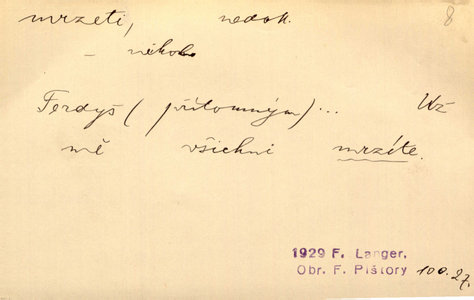 mrzeti, nedok. 8
– někoho
Ferdyš (přítomným)... Už
mě všichni mrzíte.
1929 F. Langer.
Obr. F. Pištory 100.27.